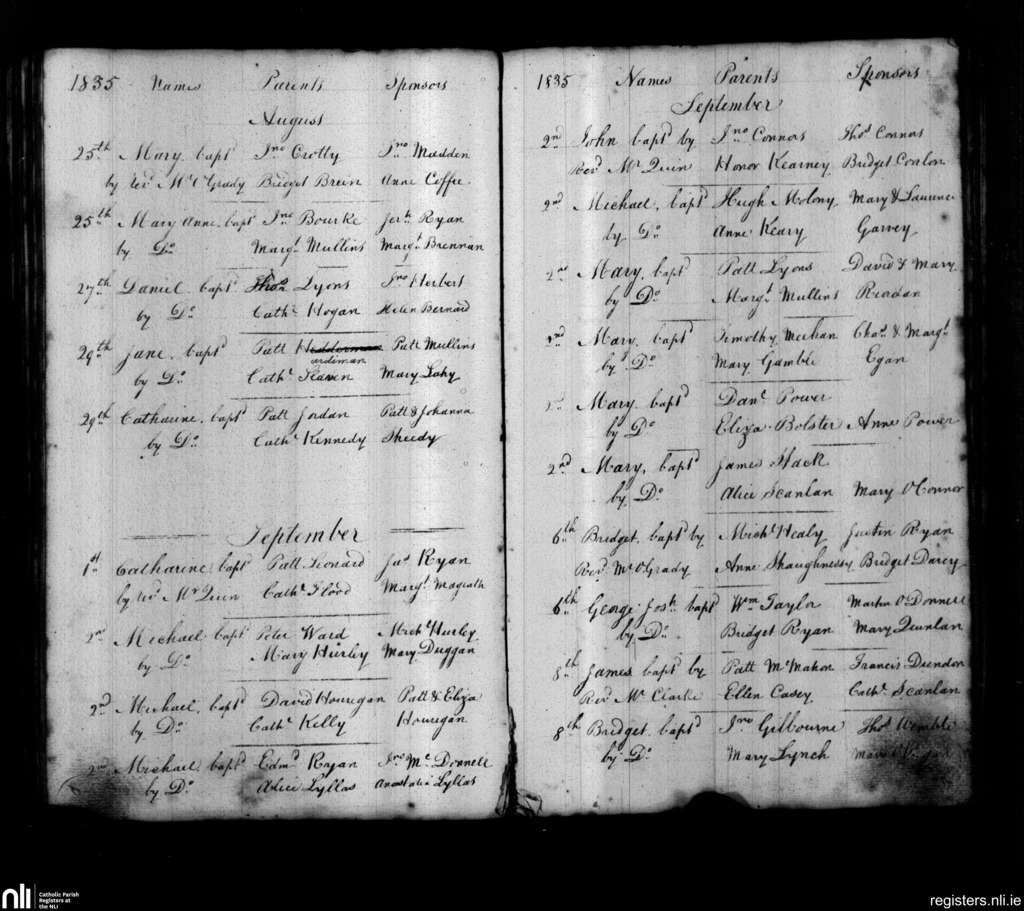 1835 Names Parents Sponsors
August
25th Mary, bapd Jno Crotty Jno Madden
by Revd Mr O'Grady Bridget Brein Anne Coffee
25th Mary Anne, bapd Jno Bourke Jerh Ryan
by Do Margt Mullins Margt Brennan
27th Daniel bapd Thos Lyons Jno Herbert
by Do Cathe Hogan Helen Bernard
29th Jane, bapd Patt Patt Mullins
ardiman
by Do Cathe Mary Lahy
29th Catharine, bapd Patt Jordan Patt & Johanna
by Do Cathe Kennedy Sheedy
September
1st Catharine, bapd Patt Leonard Jas Ryan
by Revd Mr Quin Cathe Flood Margt Magrath
2nd Michael bapd Peter Ward Michl Hurley
by Do Mary Hurley Mary Duggan
2nd Michael, bapd David Hourigan Patt & Eliza
by Do Cathe Kelly Hourigan
2nd Michael bapd Edmd Ryan Jno McDonnell
by Do Alice Lyllas Anastatia Lyllas
1835 Names Parents Sponsors
September
2nd John bapd by Jno Connors Thos Connors
Revd Mr Quin Honor Kearney Bridget Conlon
2nd Michael, bapd Hugh Molony Mary & Laurence
by Do Anne Keary Garvey
2nd Mary, bapd Patt Lyons David & Mary
by Do Margt Mullins Riordan
2nd Mary, bapd Timothy Meehan Thos & Margt
by Do Mary Gamble Egan
Mary bapd Danl Power
by Do Eliza Bolster Anne Power
2nd Mary, bapd James Slack
by Do Alice Scanlan Mary O'Connor
6th Bridget, bapd by Michl Healy Justin Ryan
Revd Mr O'Grady Anne Shaughnessy Bridget Darcy
6th George Josh bapd Wm Taylor Martin O'Donnell
by Do Bridget Ryan Mary Quinlan
8th James bapd by Patt McMahon Francis Dundon
Revd Mr Clarke Ellen Casey Cathe Scanlan
8th Bridget, bapd Jno Gilbourne Thos
by Do Mary Lynch
nli
Catholic Parish
Registers at
the NLI
registers.nli.ie